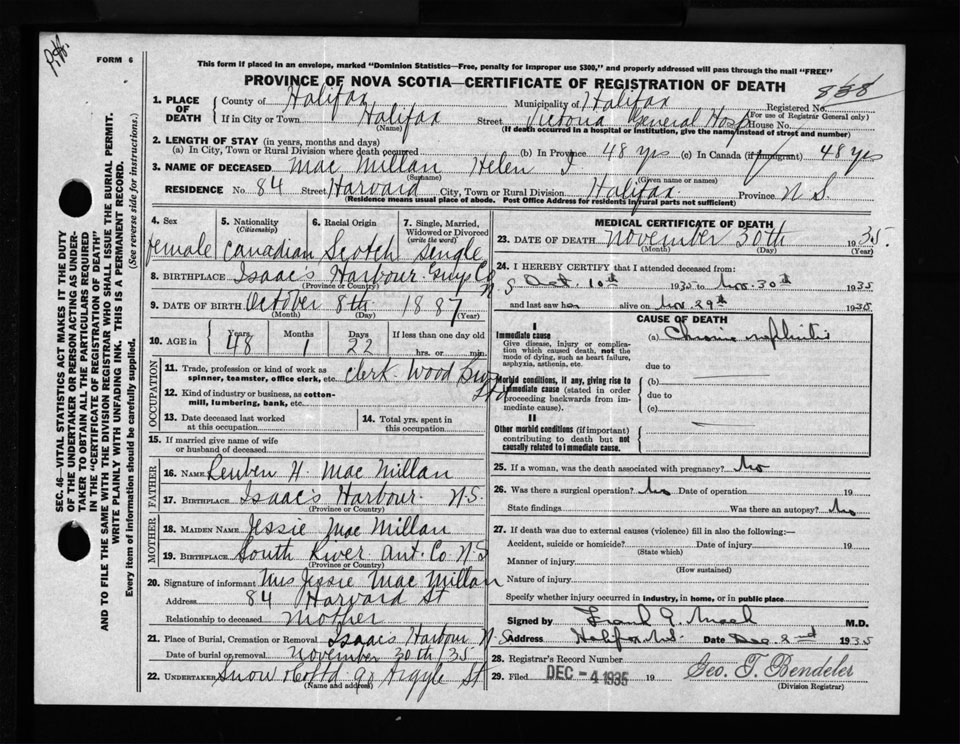 FORM 6
This form if placed in an envelope, marked "Dominion Statistics—Free, penalty for improper use $300," and properly addressed will pass through the mail "FREE"
PROVINCE OF NOVA SCOTIA—CERTIFICATE OF REGISTRATION OF DEATH
1. PLACE OF DEATH
County of Halifax Municipality of Halifax Registered No. 858
(For use of Registrar General only)
If in City or Town Halifax Street Victoria General Hosp House No.
(Name) (If death occurred in a hospital or institution, give the name instead of street and number)
2. LENGTH OF STAY (in years, months and days)
(a) In City, Town or Rural Division where death occurred (b) In Province 48 yrs (c) In Canada (if immigrant) 48 yrs
3. NAME OF DECEASED Mac Millan Helen I
(Surname) (Given name or names)
RESIDENCE No. 84 Street Harvard City, Town or Rural Division Halifax Province N S.
(Residence means usual place of abode. Post Office Address for residents in rural parts not sufficient)
4. Sex 5. Nationality (Citizenship) 6. Racial Origin 7. Single, Married, Widowed or Divorced (write the word)
female Canadian Scotch Single
8. BIRTHPLACE Isaac's Harbour Guys Co N S
(Province or County)
9. DATE OF BIRTH October 8th 1887
(Month) (Day) (Year)
10. AGE in Years Months Days If less than one day old
48 1 22 hrs. or min.
OCCUPATION
11. Trade, profession or kind of work as spinner, teamster, office clerk, etc. Clerk Wood Bros
12. Kind of industry or business, as cotton-mill, lumbering, bank, etc.
13. Date deceased last worked at this occupation 14. Total yrs. spent in this occupation
15. If married give name of wife or husband of deceased
FATHER
16. NAME Reuben H. Mac Millan
17. BIRTHPLACE Isaac's Harbour N.S.
(Province or County)
MOTHER
18. MAIDEN NAME Jessie Mac Millan
19. BIRTHPLACE South River Ant. Co N S
(Province or County)
20. Signature of informant Mrs Jessie Mac Millan
Address 84 Harvard St
Relationship to deceased Mother
21. Place of Burial, Cremation or Removal Isaac's Harbour N S
Date of burial or removal November 30th/35
22. UNDERTAKER Snow 90 Argyle St
(Name and address)
MEDICAL CERTIFICATE OF DEATH
23. DATE OF DEATH November 30th 1935.
(Month) (Day) (Year)
24. I HEREBY CERTIFY that I attended deceased from:
Oct. 10th 1935 to Nov. 30th 1935
and last saw her alive on Nov. 29th 1935
CAUSE OF DEATH
I
Immediate cause
Give disease, injury or complication which caused death, not the mode of dying, such as heart failure, asphyxia, asthenia, etc.
(a) Chronic nephritis
due to
Morbid conditions, if any, giving rise to immediate cause (stated in order proceeding backwards from immediate cause).
(b)
due to
(c)
II
Other morbid conditions (if important) contributing to death but not causally related to immediate cause.
25. If a woman, was the death associated with pregnancy? No
26. Was there a surgical operation? No Date of operation 19
State findings Was there an autopsy? No
27. If death was due to external causes (violence) fill in also the following:—
Accident, suicide or homicide? Date of injury 19
(State which)
Manner of injury
(How sustained)
Nature of injury
Specify whether injury occurred in industry, in home, or in public place
Signed by Frank G. Mack M.D.
Address Halifax N.S. Date Dec. 2nd 1935
28. Registrar's Record Number
29. Filed DEC -4 1935 19 Geo. T. Bendeler
(Division Registrar)
SEC. 46—VITAL STATISTICS ACT MAKES IT THE DUTY
OF THE UNDERTAKER OR PERSON ACTING AS UNDER-
TAKER TO OBTAIN ALL THE PARTICULARS REQUIRED
IN THE "CERTIFICATE OF REGISTRATION OF DEATH"
AND TO FILE THE SAME WITH THE DIVISION REGISTRAR WHO SHALL ISSUE THE BURIAL PERMIT.
WRITE PLAINLY WITH UNFADING INK. THIS IS A PERMANENT RECORD.
Every item of information should be carefully supplied. (See reverse side for instructions.)